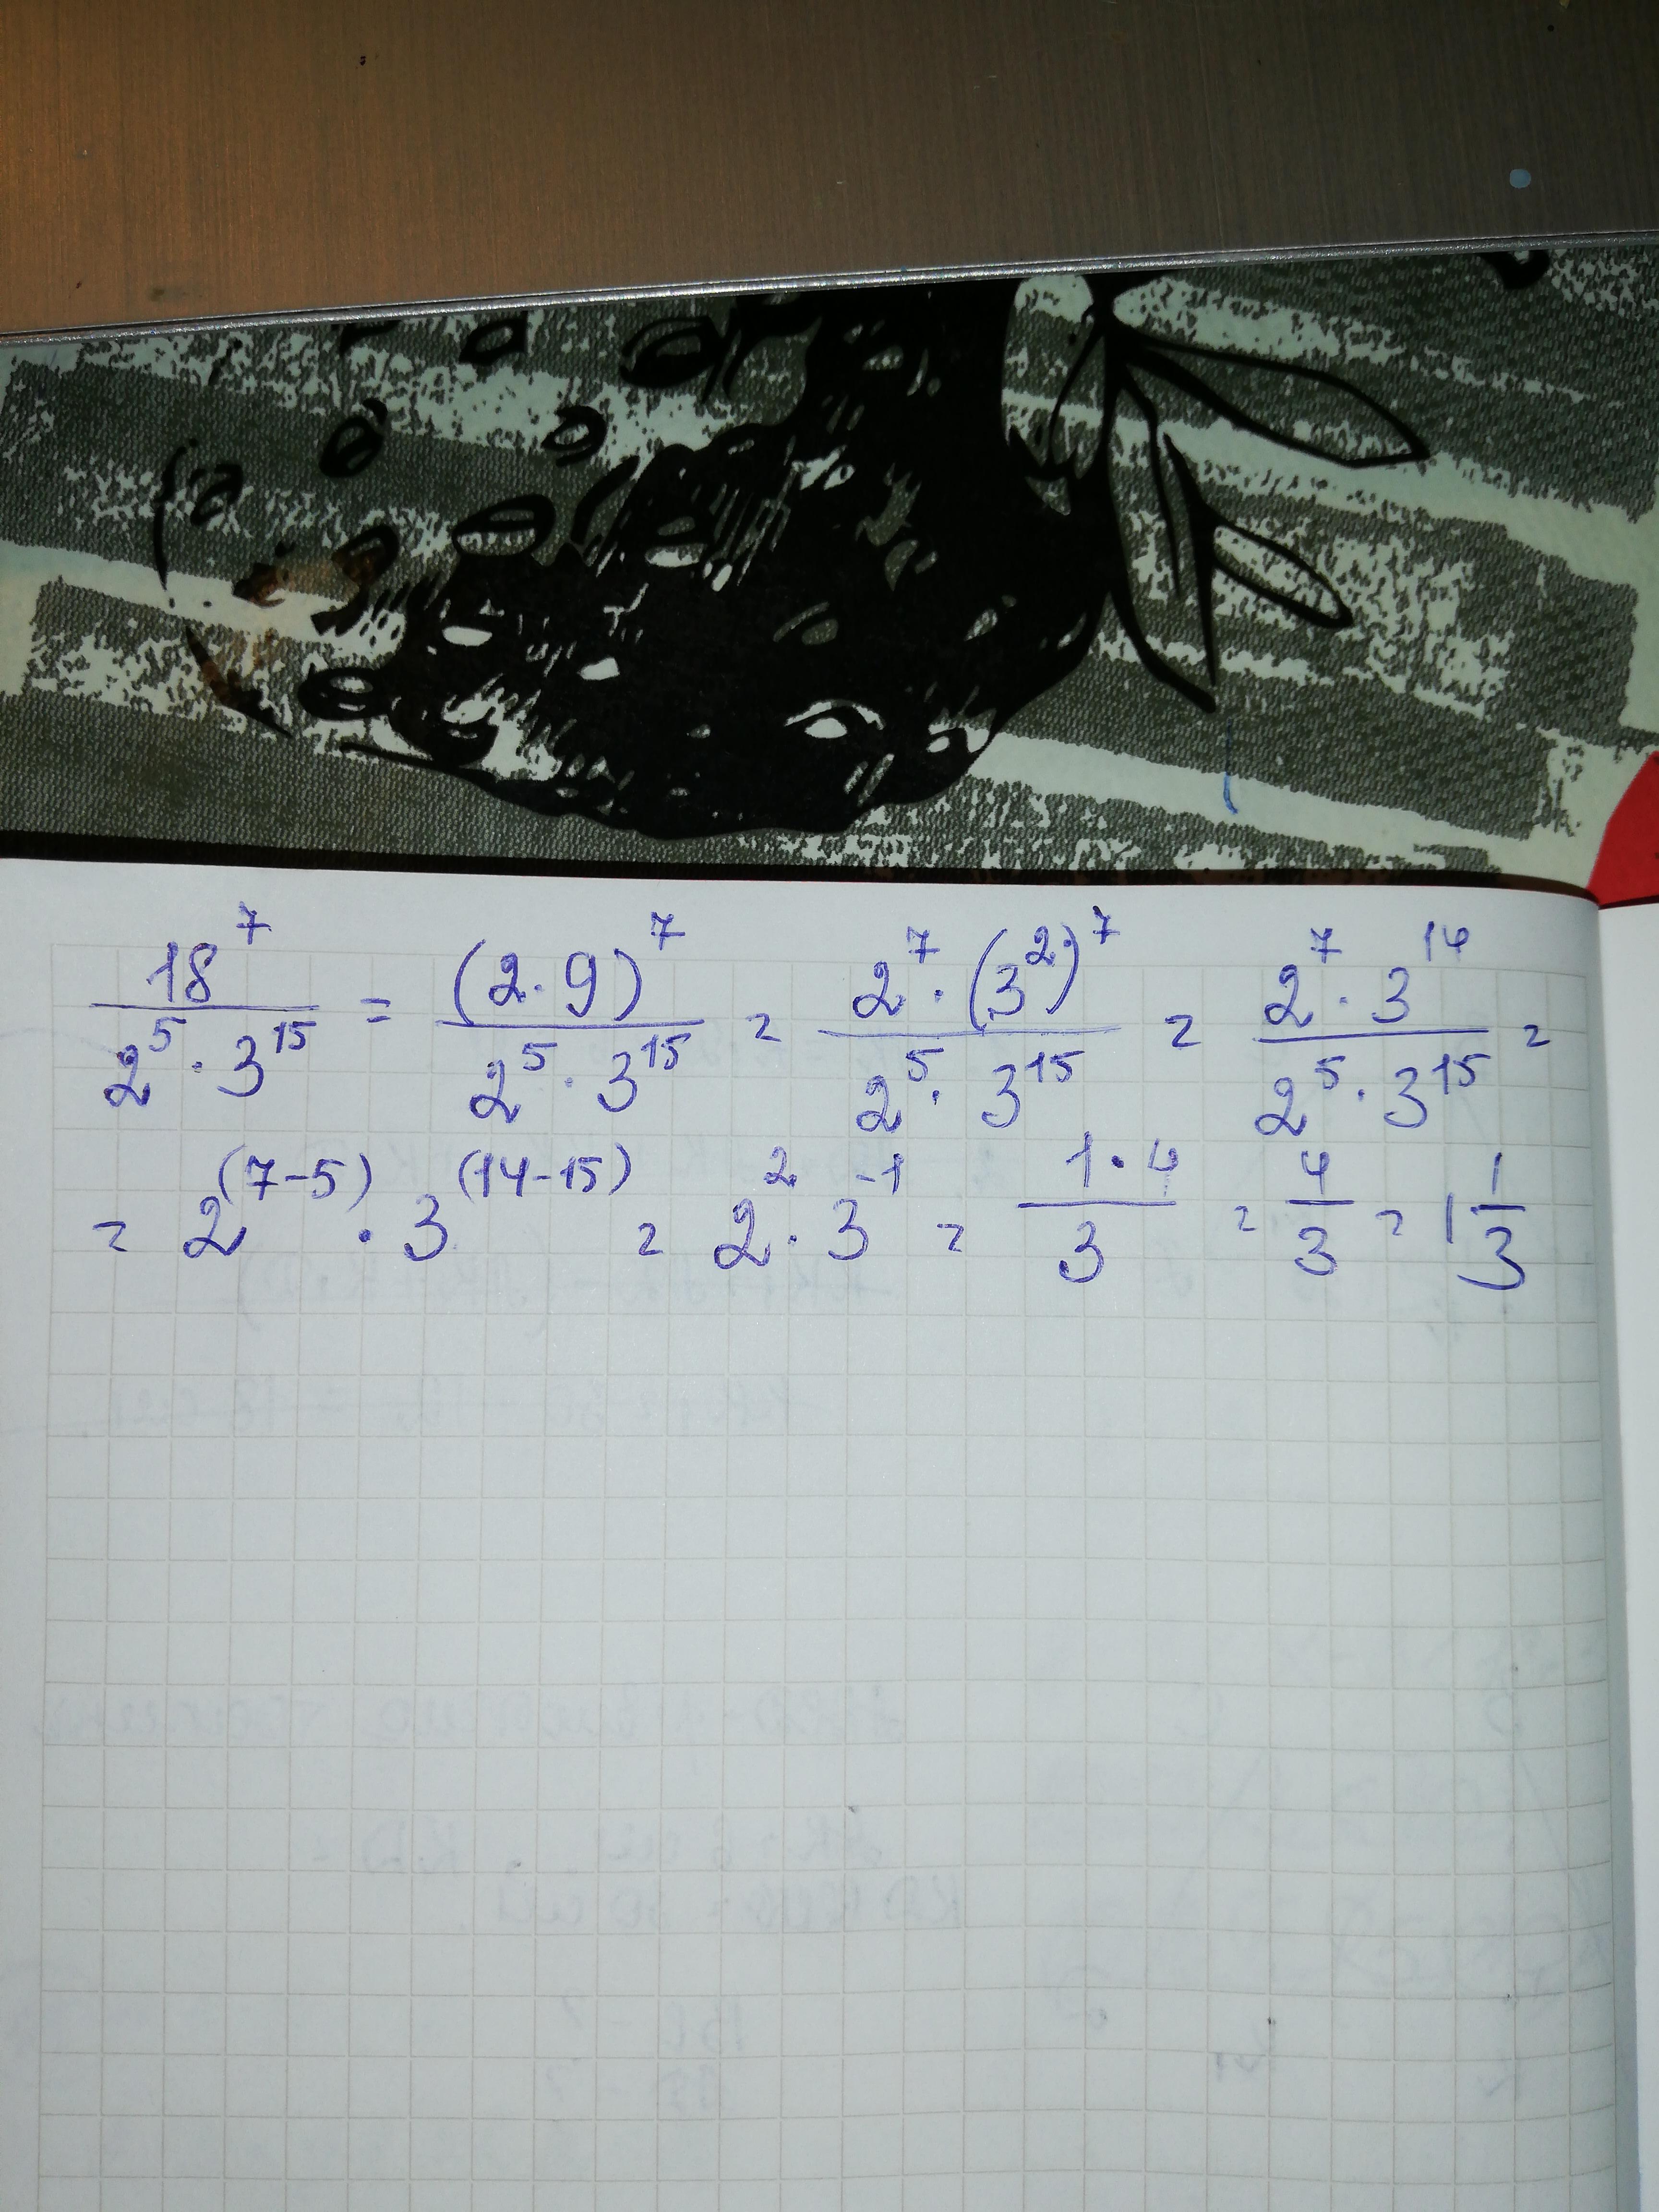 18^7 / (2^5 · 3^15) = (2 · 9)^7 / (2^5 · 3^15) = 2^7 · (3^2)^7 / (2^5 · 3^15) = 2^7 · 3^14 / (2^5 · 3^15) =
= 2^(7-5) · 3^(14-15) = 2^2 · 3^-1 = 1 · 4 / 3 = 4/3 = 1 1/3